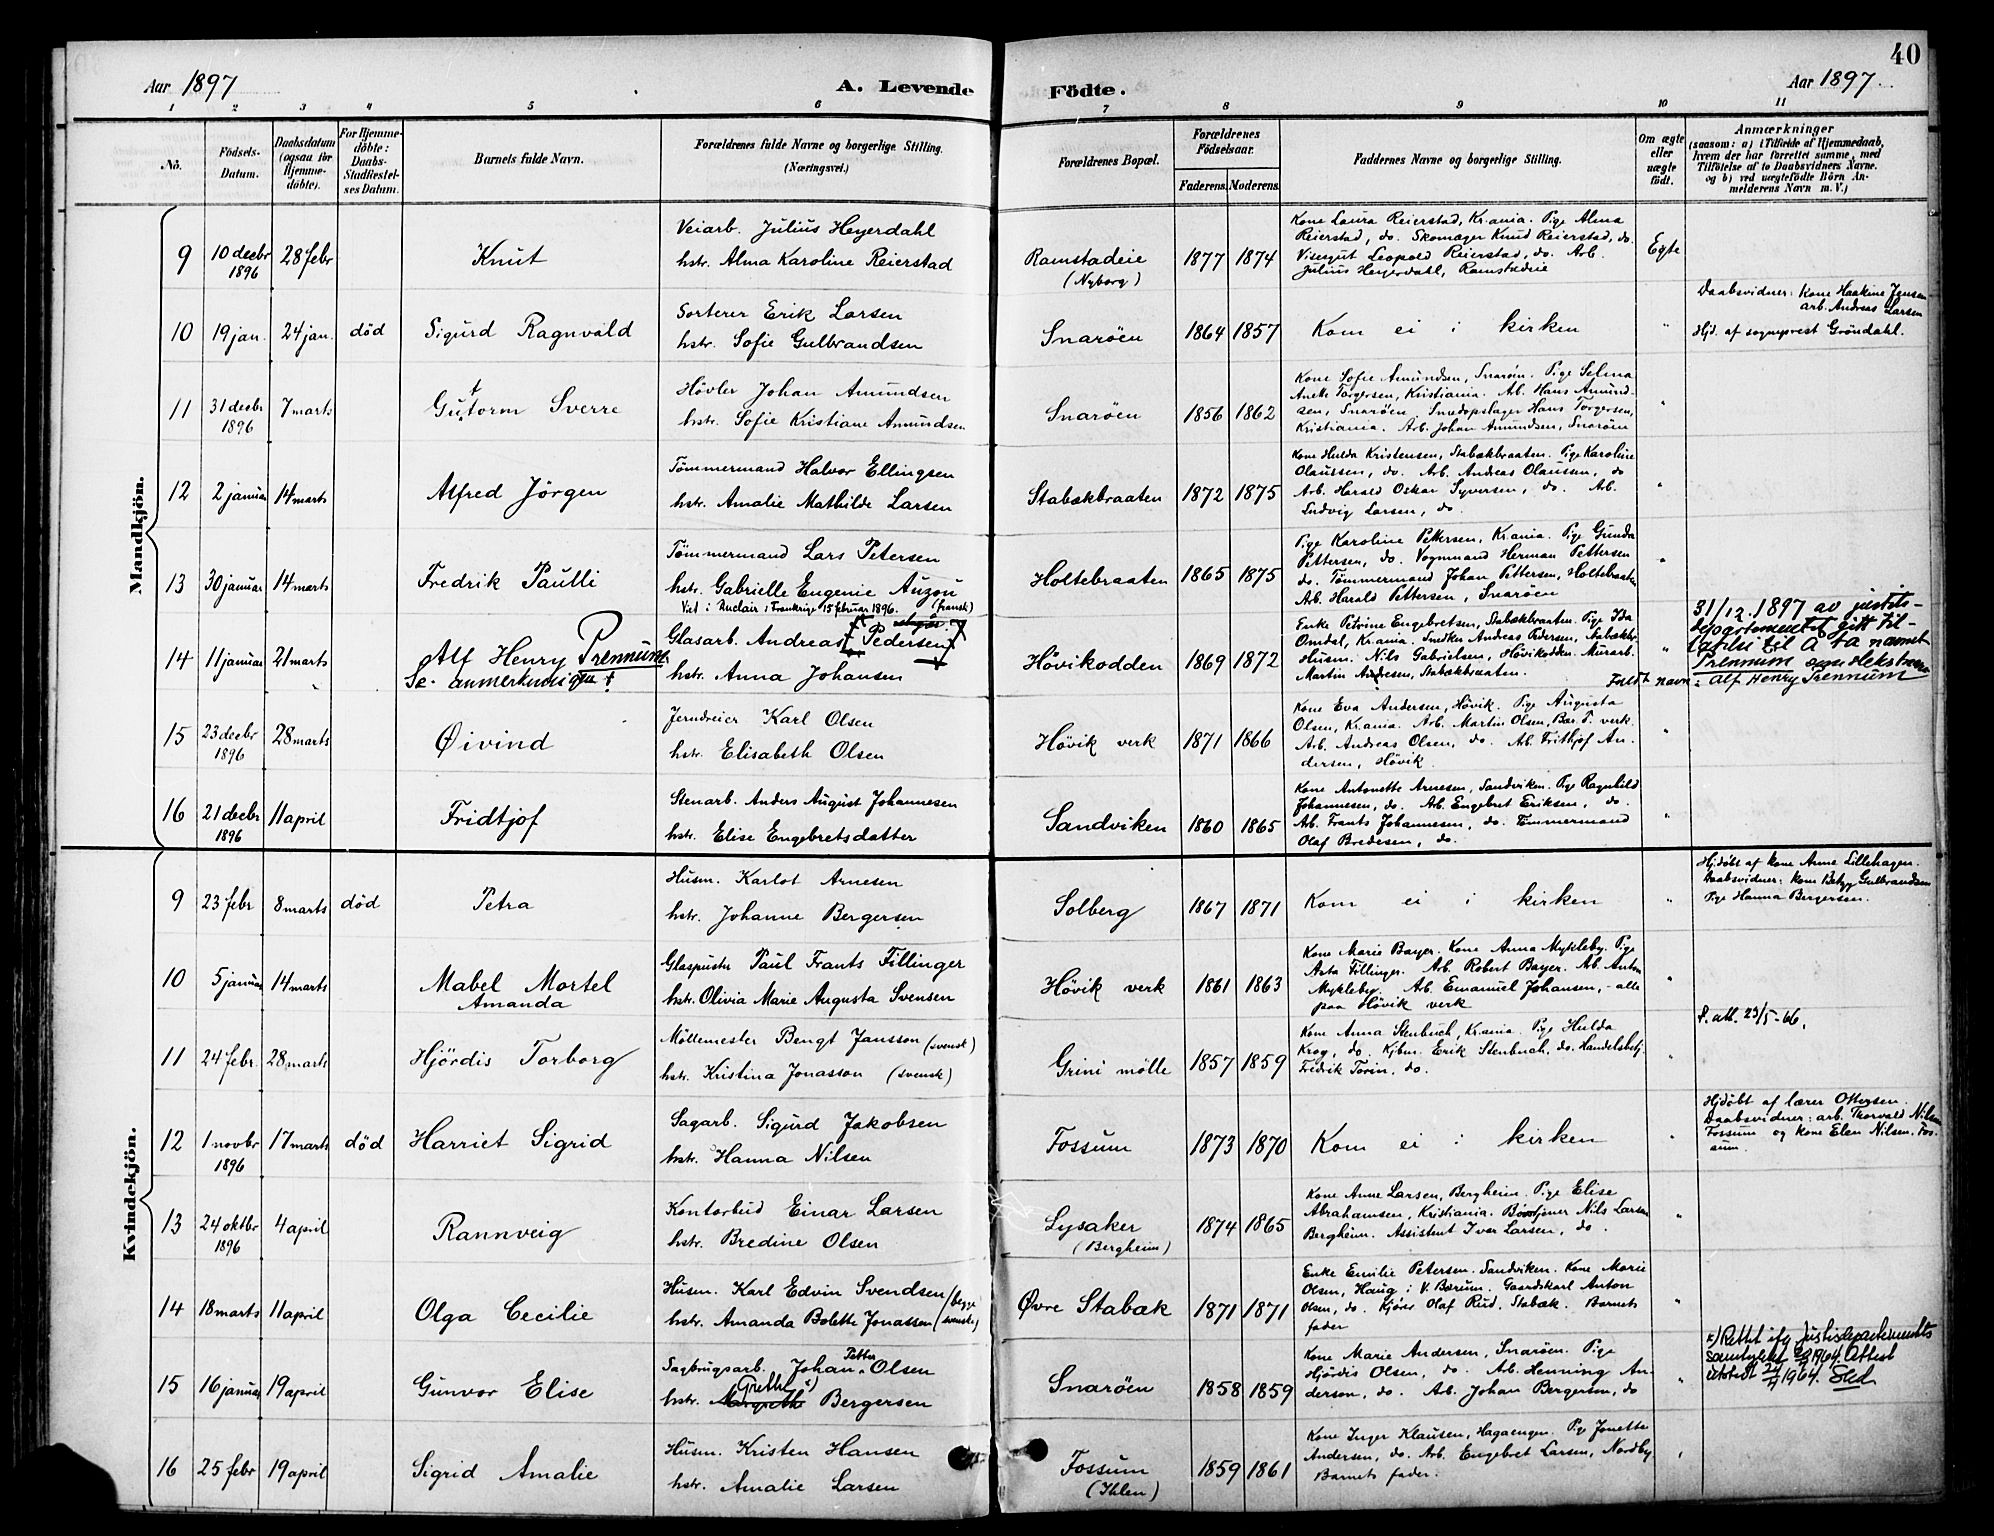 40
Aar 1897
A. Levende
Födte.
Aar 1897.
1 2 3 4 5 6 7 8 9 10 11
No.
Födsels-
Datum.
Daabsdatum
(ogsaa for
Hjemme-
döbte).
For Hjemme-
döbte:
Daabs-
Stadfæstel-
ses Datum.
Barnets fulde Navn.
Forældrenes fulde Navne og borgerlige Stilling.
(Næringsvei.)
Forældrenes Bopæl.
Forældrenes
Födselsaar.
Faderens. Moderens.
Faddernes Navne og borgerlige Stilling.
Om ægte
eller
uægte
födt.
Anmærkninger
(saasom: a) i Tilfælde af Hjemmedaab,
hvem der har forrettet samme, med
Tilföielse af to Daabsvidners Navne.
og b) ved uægtefödte Börn An-
melderens Navn m. V.)
Mandkjön.
9 10 decbr 1896 28 febr
Knut
Veiarb. Julius Heyerdahl
hstr. Alma Karoline Reierstad
Ramstadeie
(Nyborg)
1877 1874
Kone Laura Reierstad, Kr.ania. Pige Alma
Reierstad, do. Skomager Knud Reierstad, do.
Visergut Leopold Reierstad, do. Arb.
Julius Heyerdahl, Ramstadeie
Egte
10 19 jan. 24 jan. död
Sigurd Ragnvald
Sorterer Erik Larsen
hstr. Sofie Gulbrandsen
Snaröen
1864 1857
Kom ei i kirken
"
Daabsvidner: Kone Haakine Jensen
arb. Andreas Larsen
Hjd. af sogneprest Gröndahl.
11 31 decbr 1896 7 marts
Guttorm Sverre
Hövler Johan Amundsen
hstr. Sofie Kristiane Amundsen
Snaröen
1856 1862
Kone Sofie Amundsen, Snaröen. Pige Selma
Anette Torgersen, Kristiania. Arb. Hans Amund-
sen, Snaröen. Hans Torgersen,
Kristiania. Arb. Johan Amundsen, Snaröen
"
12 2 januar 14 marts
Alfred Jörgen
Tömmermand Halvor Ellingsen
hstr. Amalie Mathilde Larsen
Stabækbraaten
1872 1875
Kone Hulda Kristensen, Stabækbraaten. Pige Karoline
Olaussen, do. Arb. Andreas Olausen, do
Arb. Harald Oskar Syversen, do. Ab.
Ludvig Larsen, do.
"
13 30 januar 14 marts
Fredrik Paulli
Tömmermand Lars Petersen
hstr. Gabrielle Eugenie Auzou
Viet i Auclair i Frankrige 15 februar 1896. (fransk)
Holtebraaten
1865 1875
Pige Karoline Pettersen, Kr.ania. Pige Gunda
Pettersen, do. Vognmand Herman Pettersen
do. Tömmermand Johan Pettersen, Holtebraaten
Arb. Harald Pettersen, Snaröen
"
14 11 januar 21 marts
Alf Henry Prennum
Se anmerkningen †
Glasarb. Andreas Pedersen
hstr. Anna Johansen
Hövikodden
1869 1872
Enke Petrine Engebretsen, Stabækbraaten. Pige Ida
Omdal, Kr.ania. Snedker Andreas Pedersen, Stabækbr.
Husm. Nils Gabrielsen, Hövikodden. Murarb.
Martin Andresen, Stabækbraaten.
"
31/12.1897 av justits-
departementet gitt til-
latelse til å ta navnet
Prennum som slektsnavn
Fuldt navn: Alf Henry Prennum
15 23 decbr 1896 28 marts
Øivind
Jerndreier Karl Olsen
hstr. Elisabeth Olsen
Hövik verk
1871 1866
Kone Eva Andersen, Hövik. Pige Augusta
Olsen, Kr.ania. Arb. Martin Olsen, Bær. verk.
Arb. Andreas Olsen, do. Ab. Frithjof An-
dersen, Hövik.
"
16 21 decbr 1896 11 april
Fridtjof
Stenarb. Anders August Johannesen
hstr. Elise Engebretsdatter
Sandviken
1860 1865
Kone Antonette Arnesen, Sandviken. Pige Ragnhild
Johannesen, do. Arb. Engebret Eriksen, do.
Arb. Frants Johannesen, do. Tömmermand
Olaf Bredesen, do.
"
Kvindekjön.
9 23 febr 8 marts död
Petra
Husm. Karlot Arnesen
hstr. Johanne Bergersen
Solberg
1867 1871
Kom ei i kirken
"
Hjdöbt af kone Anne Lillehagen.
Daabsvidner: kone Betzy Gulbrandsen
Pige Hanna Bergersen.
10 5 januar 14 marts
Mabel Mortel
Amanda
Glaspuster Paul Frants Fillinger
hstr. Olivia Marie Augusta Svensen
Hövik verk
1861 1863
Kone Marie Bayer. Kone Anna Mykleby. Pige
Asta Fillinger. Arb. Robert Bayer. Ab. Anton
Mykleby. Arb. Emanuel Johansen, - alle
paa Hövik verk
"
11 24 febr. 28 marts
Hjördis Torborg
Möllemester Bengt Jansson (svensk)
hstr. Kristina Jonasson (svensk)
Grini mölle
1857 1859
Kone Anna Stenbuch, Kr.ania. Pige Hulda
Krog, do. Kjbm. Erik Stenbuch, do. Handelsbetj.
Fredrik Torin, do.
"
P. att. 23/5-66.
12 1 novbr 1896 17 marts död
Harriet Sigrid
Sagarb. Sigurd Jakobsen
hstr. Hanna Nilsen
Fossum
1873 1870
Kom ei i kirken
"
Hjdöbt af lærer Ottersen.
Daabsvidner: arb. Thorvald Nilsen
Fossum og kone Elen Nilsen. Fos-
sum.
13 24 oktbr 1896 4 april
Rannveig
Kontorbud Einar Larsen
hstr. Bredine Olsen
Lysaker
(Bergheim)
1874 1865
Kone Anne Larsen, Bergheim. Pige Elise
Abrahamsen, Kristiania. Nils Larsen
Bergheim. Assistent Ivar Larsen, do.
"
14 18 marts 11 april
Olga Cecilie
Husm. Karl Edvin Svendsen (begge
hstr. Amanda Bolette Jonasson svenske)
Øvre Stabæk
1871 1871
Enke Emilie Petersen. Sandviken. Kone Marie
Olsen, Haug i V. Bærum. Gaardskarl Anton
Olsen, do. Kjörer Olaf Rud, Stabæk. Barnets
fader
"
15 16 januar 19 april
Gunvor Elise
Sagbrugsarb. Johan Petter Olsen
hstr. Margrethe Grethe x) Bergersen
Snaröen
1858 1859
Kone Marie Andersen, Snaröen. Pige
Hjördis Olsen, do. Arb. Henning An-
dersen, do. Ab. Johan Bergersen, do
"
x) Rettet ifg. Justisdepartementets
samtykke 1964. Attest
utstedt 1964.
16 25 febr 19 april
Sigrid Amalie
Husm. Kristen Hansen
hstr. Amalie Larsen
Fossum
(Ihlen)
1859 1861
Kone Inger Klausen, Hagaengen. Pig Jonette
Andersen, do. Arb. Engebret Larsen, Nordby
Barnets fader.
"